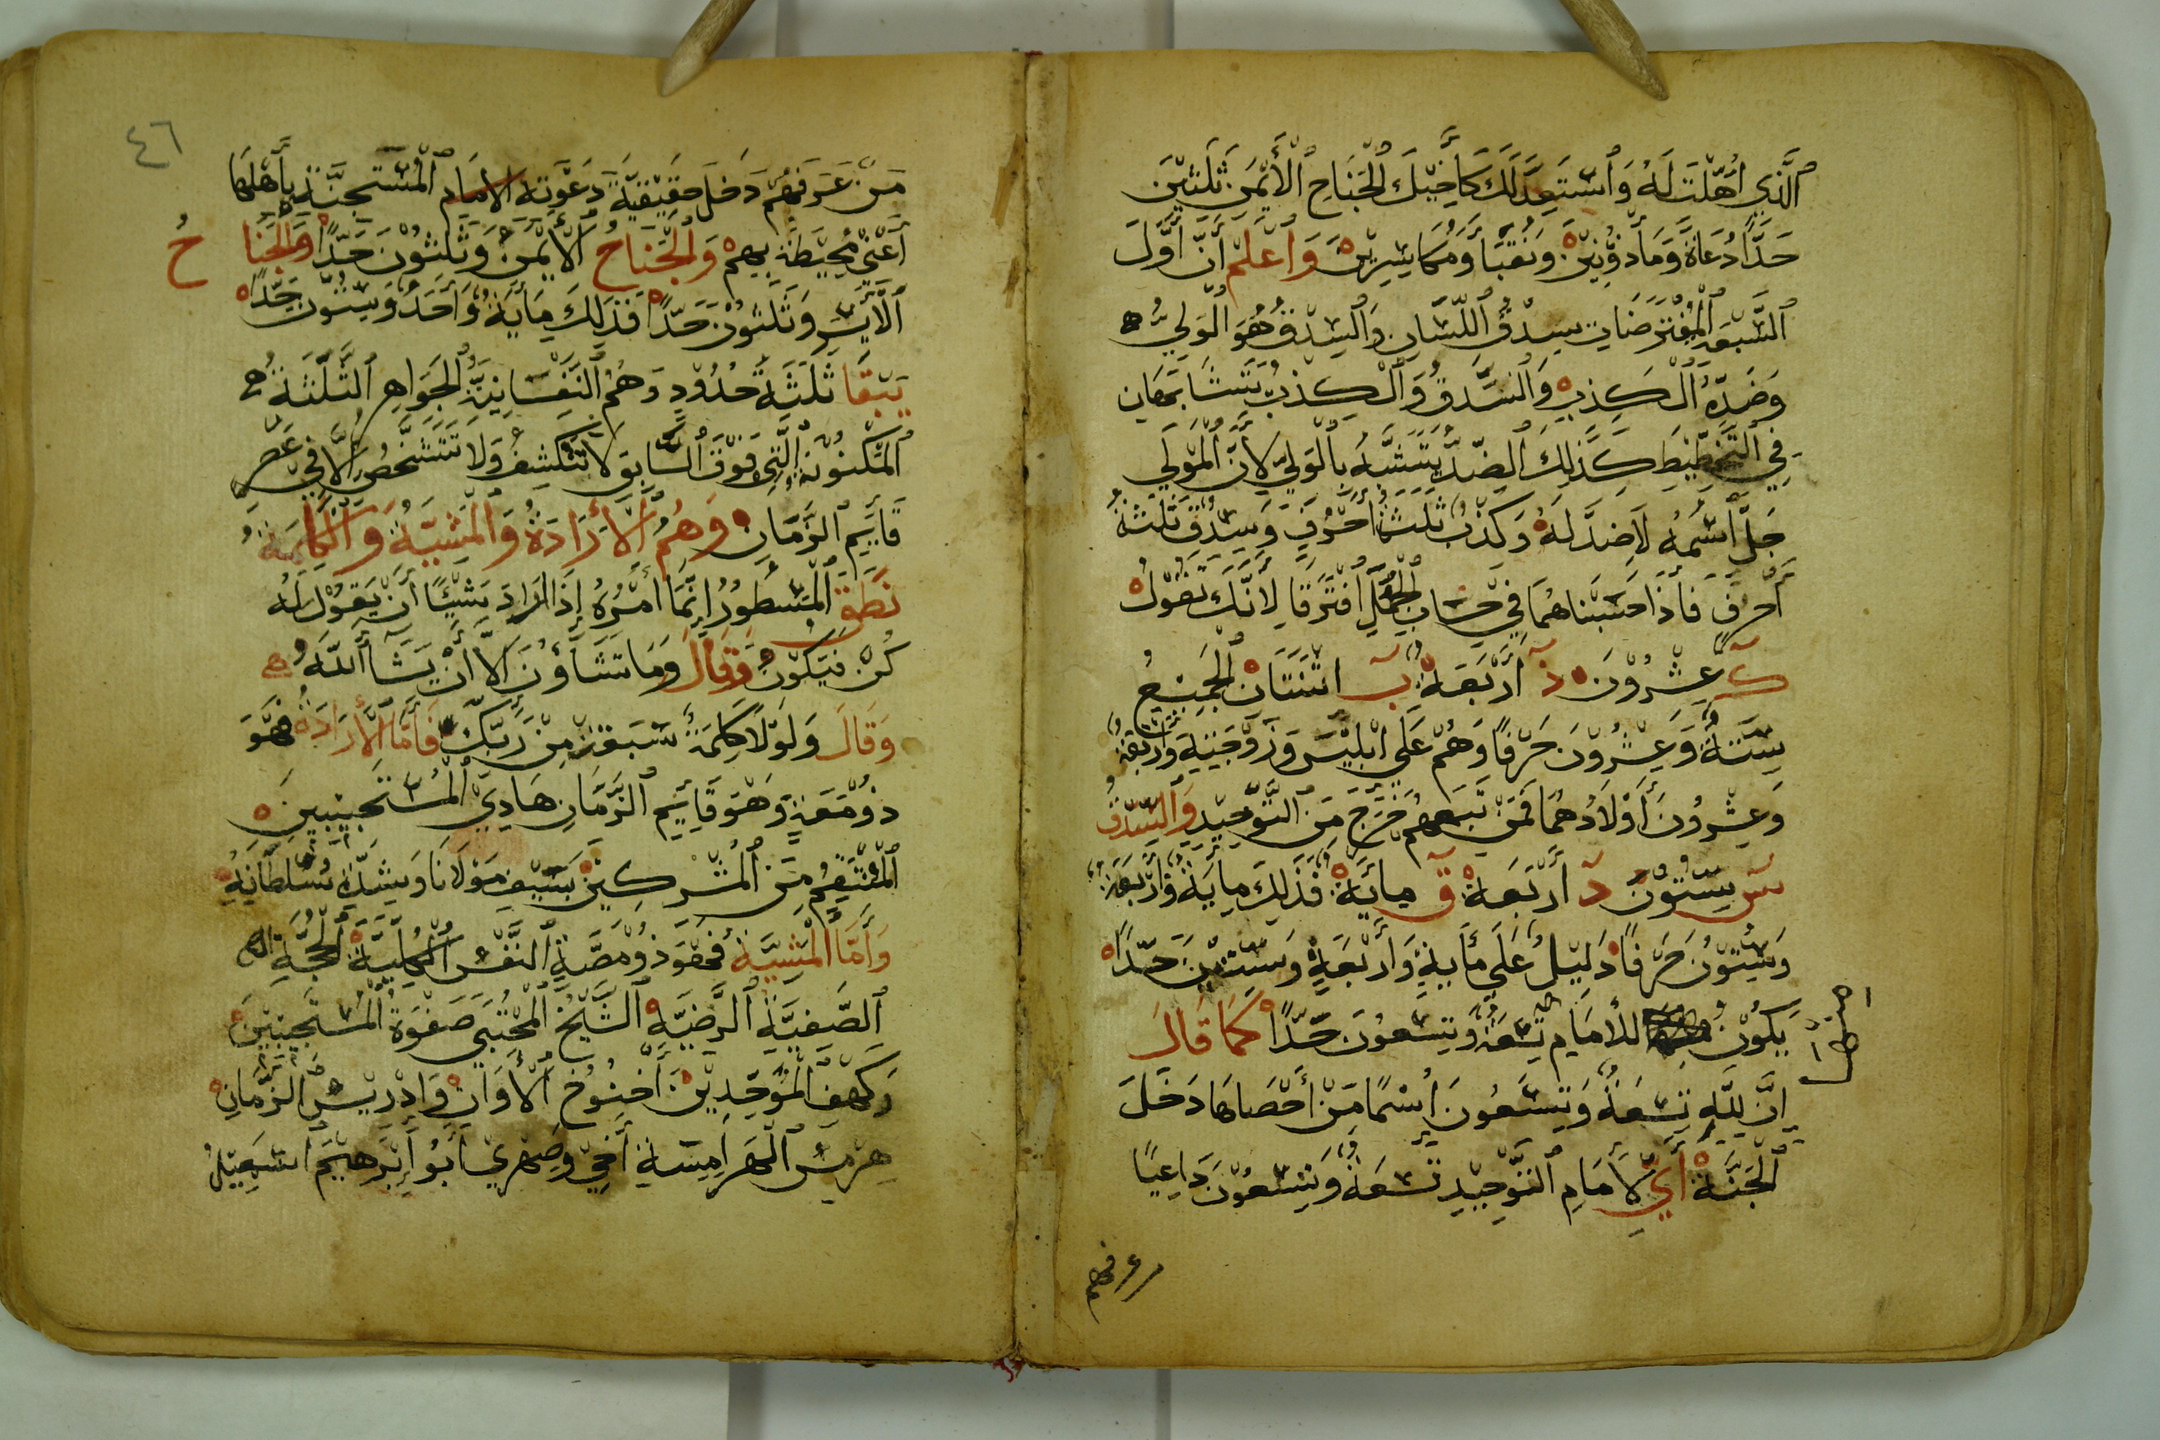 ٱلَّذِي أُهِّلْتَ لَهُ وَٱسْتَعِدَّ لَكَ كَأَخِيكَ ٱلْجَنَاحِ ٱلْأَيْمَنِ ثَلَثِيْنَ
حَدًّا دُعَاةً وَمَأذُوْنِيْنَ وَنُقَبَا وَمُكَاسِرِيْنَ وَٱعْلَمْ أَنَّ أَوَّلَ
ٱلسَّبْعِ ٱلْمُفْتَرَضَاتِ سِدْقُ ٱللِّسَانِ وَٱلسِّدْقُ هُوَ ٱلْوَلِيُّ
وَضَدِّهِ ٱلْكِذِبُ وَٱلسِّدْقُ وَٱلْكِذْبُ يَتَشَابَهَانِ
فِي ٱلتَّخْطِيْطِ كَذَلِكَ ٱلضِّدُّ يَتَشَبَّهُ بِٱلْوَلِيِّ لِأَنَّ ٱلْمَوْلَى
جَلَّ ٱسْمُهُ لَا ضِدَّ لَهُ وَكَذْبُ ثَلَثَةُ أَحْرُفٍ وَسِدْقٌ ثَلَثَةُ
أَحْرُفٍ فَأذَا حَسَبْنَاهُمَا فِي حِسَابِ ٱلْجُمَّلِ ٱفْتَرَقَا لِأَنَّكَ تَقُوْلُ
كَ عِشْرُوْنَ ذَ أَرْبَعَةٌ بَ اثْنَتَانْ ٱلْجَمِيْعُ
سِتَّةٌ وَعِشْرُوْنَ حَرْفًا وَهُمْ عَلَى ابْلِيْسَ وَزَوْجَتِهِ وَأَرْبَعَةٌ
وَعِشْرُونَ أَوْلَادُهُمَا فَمَنْ تَبِعَهُمْ خَرَجَ مِنَ ٱلتَّوْحِيْدِ وَٱلسِّدْقُ
سَ سِتُّوْنَ دَ أَرْبَعَةٌ قَ مِايَةٌ فَذَلِكَ مِايَةٌ وَأَرْبَعَةٌ
وَسِتُّوْنَ حَرْفًا دَلِيْلٌ عَلَى مِأيَةٍ وَأَرْبَعَةٍ وَسِتِّيْنَ حَدًّا
يَكُوْنُ لِلْأمَامِ تِسْعَةٌ وَتِسْعُونَ حَدًّا كَمَا قَالَ
إِنَّ لِلَّهِ تِسْعَةٌ وَتِسْعُونَ إِسْمًا مَنْ أَحْصَاهَا دَخَلَ
ٱلْجَنَّةْ أَيْ لِأَمَامِ ٱلتَّوْحِيْدِ تِسْعَةٌ وَتِسْعُوْنَ دَاعِيًا
من عرفهم
٤٦
مَنْ عَرَفَهُمْ دَخَلَ حَقِيْقِيَّةَ دَعْوَتِهِ الإمَامِ ٱلْمُسْتَجِنَّةِ بِأَهْلِهَا
أَعْنِي مُحِيْطَةً بِهِمْ وَٱلْجَنَاحُ ٱلْأَيْمَنُ وَثَلَثُوْنَ حَدًّا وَٱلْجَنَاحُ
ٱلْأَيْسَرِ وَثَلَثُوْنَ حَدًّا فَذَلِكَ مِايَةٌ وَأَحَدٌ وَسِتُّوْنَ حَدًّا
يَبْقَا ثَلَثَةُ حُدُوْدٍ وَهُمُ ٱلنَّفْسَانِيَّةُ ٱلْجَوَاهِرِ ٱلثَّلَثَةُ
ٱلْمَكْنُوْنَةِ ٱلَّتِي فَوْقَ ٱلسَّابِقِ لَا تَنْكَشِفُ وَلَا تَتَشَخَّصُ إِلَّا فِي عَصْرِ
قَايِمِ ٱلزَّمَانِ وَهُمُ ٱلْأرَادَةُ وَٱلْمَشِيَّةُ وَٱلْكَلِمَةُ
نَطَقَ ٱلْمَسْطُورُ إِنَّمَا أَمْرُهُ إِذَا أَرَادَ شَيْئًا أَنْ يَقُوْلَ لَهُ
كُنْ فَيَكُوْنُ وَقَالَ وَمَا تَشَاؤُنَ إِلَّا أَنْ يَشَآ ٱللَّهُ
وَقَالَ وَلَوْلَا كَلِمَةٌ سَبَقَتْ مِنْ رَبِّكَ فَأَمَّا ٱلْأَرَادَةُ فَهُوَ
ذُوْمَعَةٍ وَهُوَ قَايِمِ ٱلزَّمَانِ هَادِيْ ٱلْمُسْتَجِيْبِيْنَ
ٱلْمُنْتَقِمُ مِنَ ٱلْمُشْرِكِيْنَ بِسَيْفِ مَوْلَانَا وَشِدَّةِ سُلْطَانِهِ
وَأَمَّا ٱلْمَشِيَّةُ فَهُوَ ذُوْ مَصَّةٍ ٱلنَّفْسِ ٱلْكُلِّيَّةْ ٱلْحُجَّةِ
ٱلصَّفِيَّةِ ٱلرَّضِيَّةِ ٱلشَّيْخُ ٱلْمُجْتَبَى صَفْوَةُ ٱلْمُسْتَجِيْبِيْنَ
وَكَهْفَ ٱلْمُوَحِّدِيْنَ أَخْنُوْخُ ٱلْأَوَانِ وَإِدْرِيْسُ ٱلزَّمَانِ
هِرْمِسُ ٱلْهَرَامِسَةِ أَخِيْ وَصِهْرِي أَبُو إِبْرَهِيْمَ اسْمَعِيْلُ